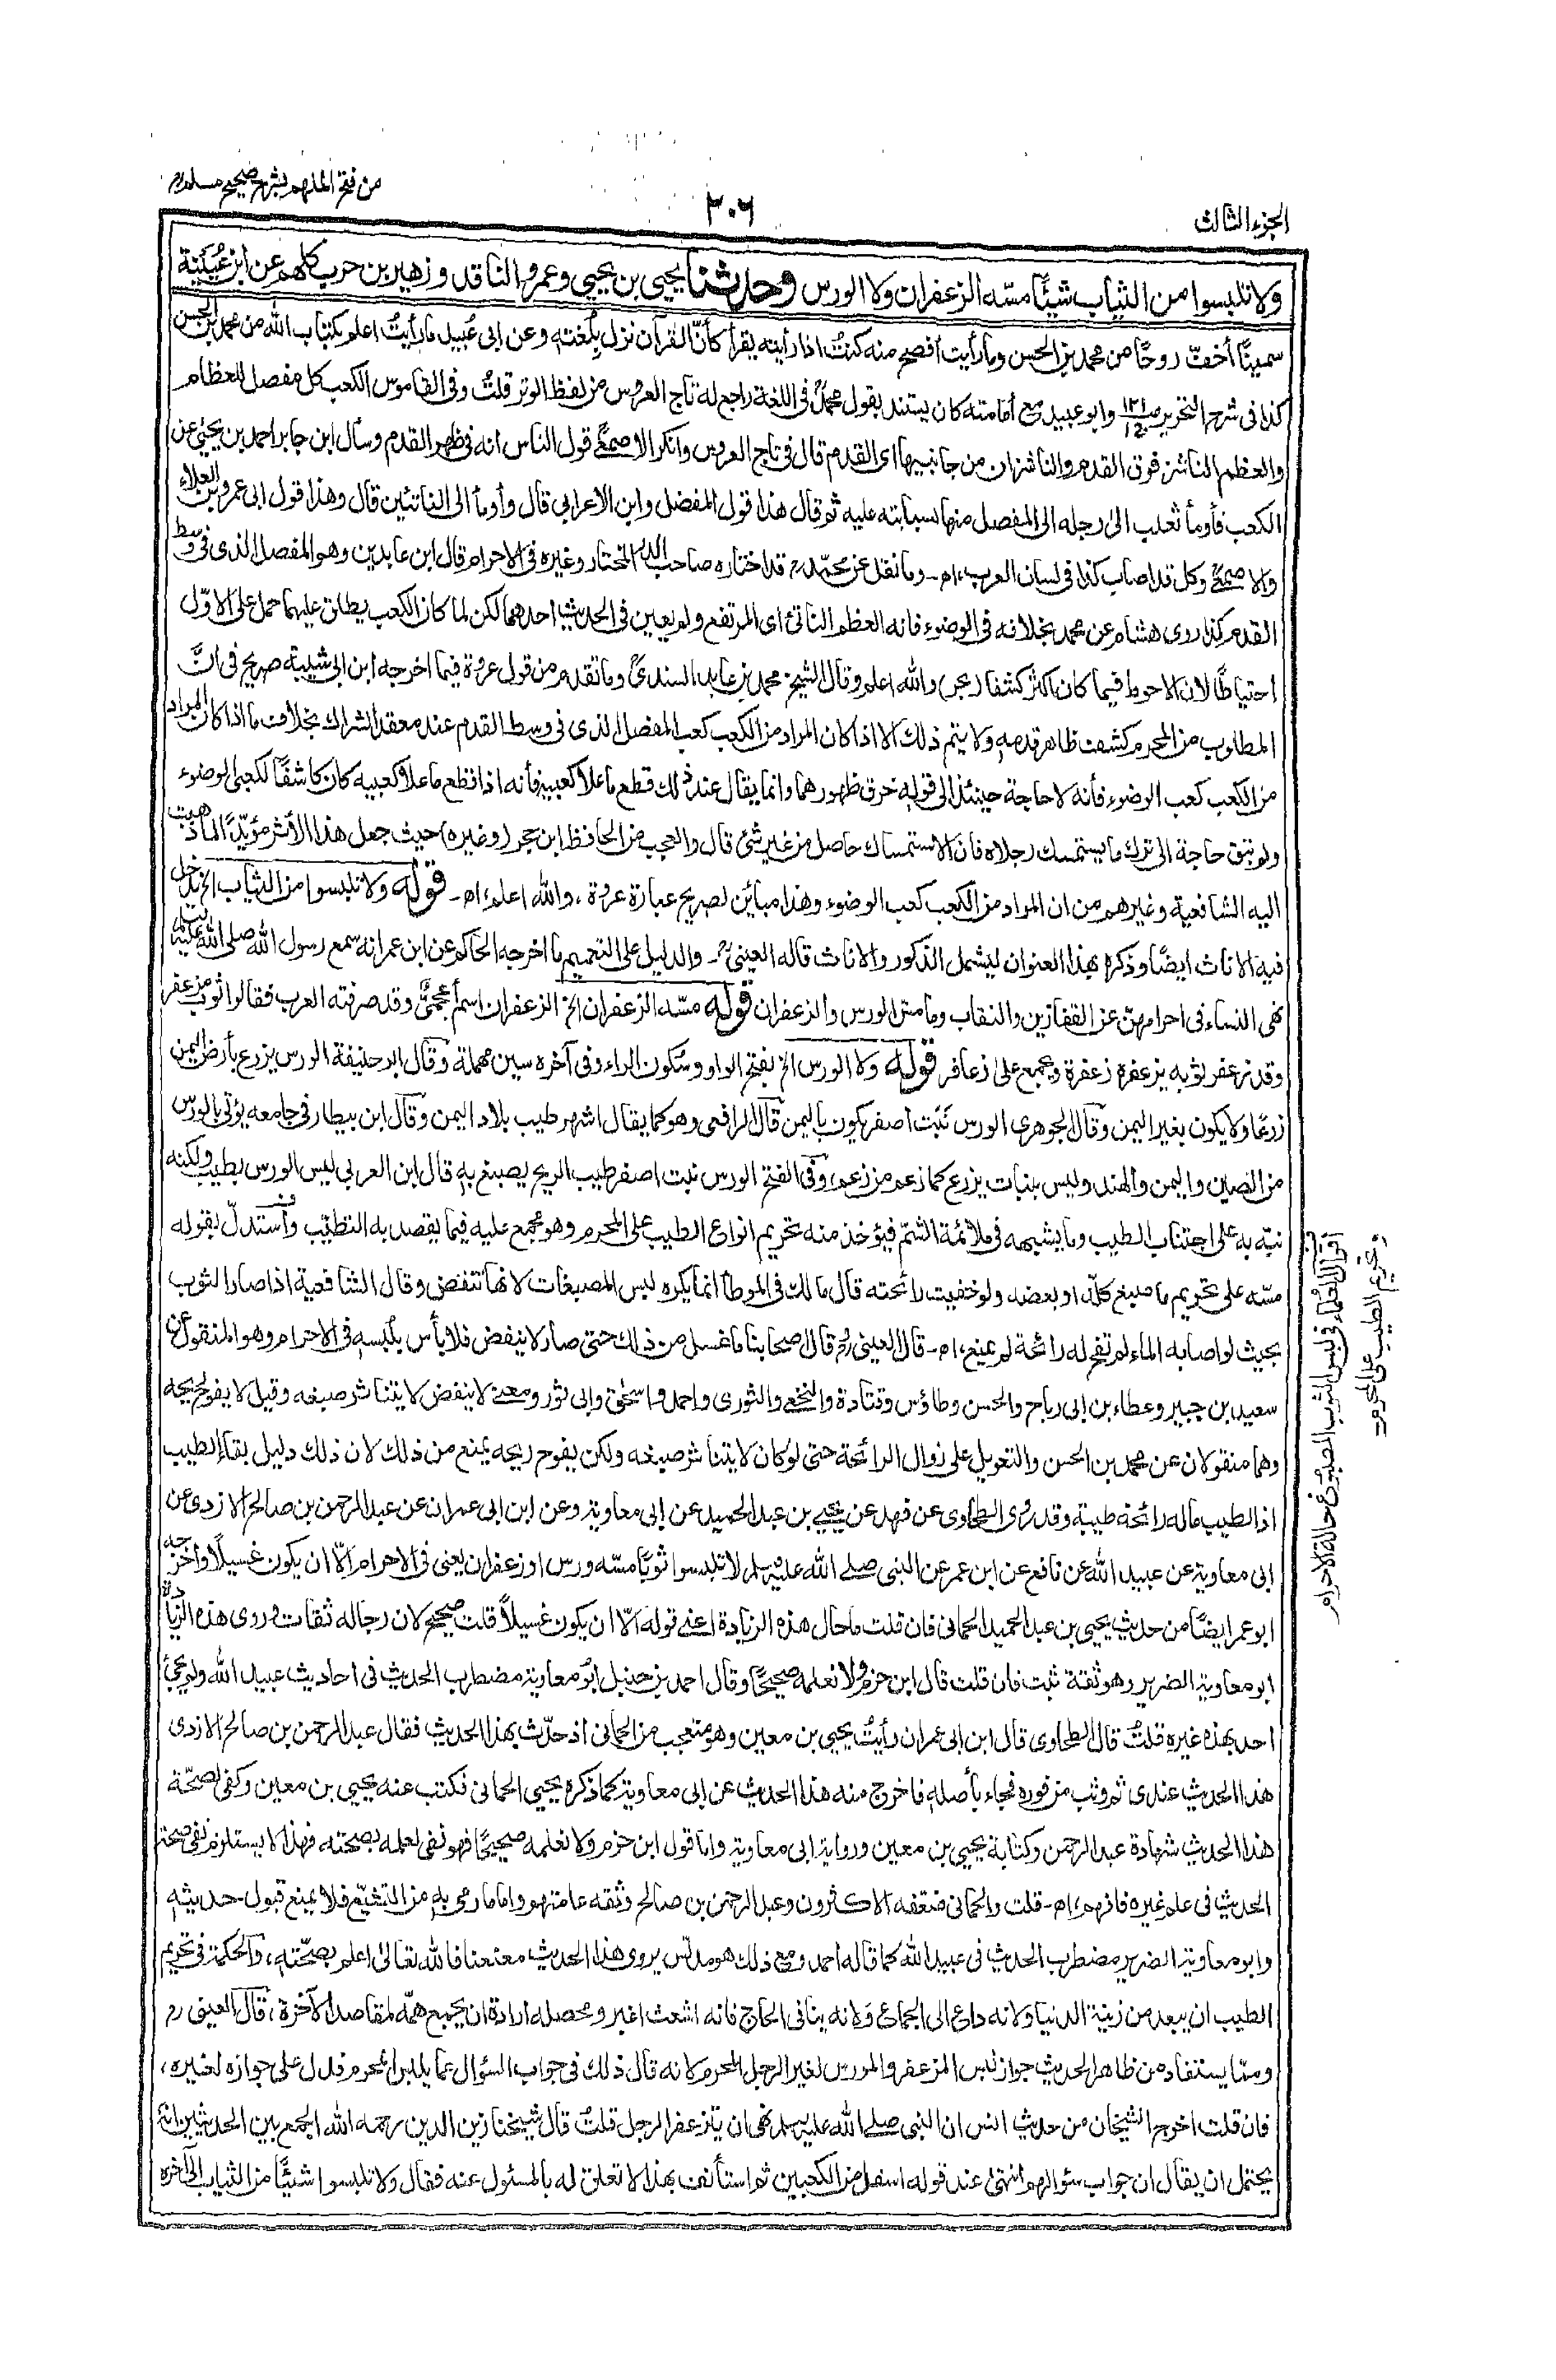 الجزء الثالث
٢٠٦
من فتح الملهم بشرح صحيح مسلم
ولا تلبسوا من الثياب شيئًا مسّه الزعفران ولا الورس وحدثنا يحيى بن يحيى وعمرو الناقد وزهير بن حرب كلهم عن ابن عُيَيْنة
سمينًا أخفّ روحًا من محمد بن الحسن وما رأيت أفصح منه كنتُ اذا رأيته يقرأ كأنّ القرآن نزل بِلُغته وعن ابى عُبيد ما رأيتُ اعلم بكتاب الله من محمد بن الحسن
كذا فى شرح التحرير وابو عبيد مع أمامته كان يستند بقول محمدٌ فى اللغة راجع له تاج العروس من لفظ الوتر قلتُ وفى القاموس الكعب كل مفصل للعظام
والعظم الناشز فوق القدم والناشزان من جانبيها اى القدم قال فى تاج العروس وانكر الاصمعىّ قول الناس انه فى ظهر القدم وسأل ابن جابر احمد بن يحيىٰ عن
الكعب فأومأ ثعلب الى رجله الى المفصل منها بسبابته عليه ثم قال هذا قول المفضل وابن الاعرابى قال وأومأ الى الناتئين قال وهذا قول ابى عمرو بن العلاء
والاصمعىّ وكل قد اصاب كذا فى لسان العرب، اه‍ - وما نقل عن محمّد قد اختاره صاحب الدر المختار وغيره فى الاحرام قال ابن عابدين وهو المفصل الذى فى وسط
القدم كذا روى هشام عن محمد بخلافه فى الوضوء فانه العظم الناتئ اى المرتفع ولم يعين فى الحديث احدهما لكن لما كان الكعب يطلق عليهما حمل على الاوّل
احتياطًا لان الاحوط فيما كان اكثر كشفا (بحر) والله اعلم وقال الشيخ محمد بن عابد السندىّ وما تقدم من قول عروة فيما اخرجه ابن ابى شيبة صريح فى انّ
المطلوب من المحرم كشف ظاهر قدمه ولا يتم ذلك الا اذا كان المراد من الكعب كعب المفصل الذى فى وسط القدم عند معقد الشراك بخلاف ما اذا كان المراد
من الكعب كعب الوضوء فأنه لا حاجة حينئذ الى قوله خرق ظهورهما وانما يقال عند ذلك قطع ما علا كعبيه فأنه اذا قطع ما علا كعبيه كان كاشفًا لكعبى الوضوء
ولم تبق حاجة الى ترك ما يستمسك رجلاه فان الاستمساك حاصل من غير شئ قال والعجب من الحافظ ابن حجر (وغيره) حيث جعل هذا الأثر مؤيّدًا لما ذهبت
اليه الشافعية وغيرهم من ان المراد من الكعب كعب الوضوء وهذا مبائن لصريح عبارة عروة، والله اعلم، اه‍ - قوله ولا تلبسوا من الثياب الخ يدخل
فيه الاناث ايضًا وذكره بهذا العنوان ليشمل الذكور والاناث قاله العينىؒ - والدليل على التعميم ما اخرجه الحاكم عن ابن عمر انه سمع رسول الله صلى الله عليه وسلم
نهى النساء فى احرامهنّ عن القفازين والنقاب وما مسّ الورس والزعفران قوله مسّه الزعفران الخ الزعفران اسم أعجمىٌّ وقد صرفته العرب فقالوا ثوب مزعفر
وقد زعفر ثوبه يزعفره زعفرة ويجمع على زعافر قوله ولا الورس الخ بفتح الواو وسُكون الراء وفى آخره سين مهملة وقال ابو حنيفة الورس يزرع بأرض اليمن
زرعًا ولا يكون بغير اليمن وقال الجوهرى الورس نَبْت أصفر يكون باليمن قال الرافعى وهو كما يقال اشهر طيب بلاد اليمن وقال ابن بيطار فى جامعه يؤتى بالورس
من الصين واليمن والهند وليس بنبات يزرع كما زعم من زعم، وفى الفتح الورس نبت اصفر طيب الريح يصبغ به قال ابن العربى ليس الورس بطيب ولكنه
نبّه به على اجتناب الطيب وما يشبهه فى ملائمة الشّمّ فيؤخذ منه تحريم انواع الطيب على المحرم وهو مجمع عليه فيما يقصد به التطيّب وأستدلّ بقوله
مسّه على تحريم ما صبغ كلّه او بعضه ولو خفيت رائحته قال مالك فى الموطأ انما يكره لبس المصبغات لانها تنفض وقال الشافعية اذا صار الثوب
بحيث لو اصابه الماء لم تفح له رائحة لم يمنع، اه‍ - قال العينىؒ قال اصحابنا ما غسل من ذلك حتى صار لا ينفض فلا بأس بلُبسه فى الاحرام وهو المنقول عن
سعيد بن جبير وعطاء بن ابى رباح والحسن وطاؤس وقتادة والنخعى والثورى واحمد واسحٰق وابى ثور ومعنى لا ينفض لا يتناثر صبغه وقيل لا يفوح ريحه
وهما منقولان عن محمد بن الحسن والتعويل على زوال الرائحة حتى لو كان لا يتناثر صبغه ولكن يفوح ريحه يمنع من ذلك لان ذلك دليل بقاء الطيب
اذ الطيب ما له رائحة طيبة وقد روى الطحاوى عن فهد عن يحيى بن عبد الحميد عن ابى معاوية وعن ابن ابى عمران عن عبد الرحمن بن صالح الازدى عن
ابى معاوية عن عبيد الله عن نافع عن ابن عمر عن النبى صلى الله عليه وسلم لا تلبسوا ثوبًا مسّه ورس او زعفران يعنى فى الاحرام الّا ان يكون غسيلًا واخرجه
ابو عمر ايضًا من حديث يحيى بن عبد الحميد الحمانى فان قلت ما حال هذه الزيادة اعنى قوله الّا ان يكون غسيلاً قلت صحيح لان رجاله ثقات وروى هذه الزيادة
ابو معاوية الضرير وهو ثقة ثبت فان قلت قال ابن حزم ولا نعلمه صحيحًا وقال احمد بن حنبل ابو معاوية مضطرب الحديث فى احاديث عبيد الله ولم يجئ
احد بهذه غيره قلتُ قال الطحاوى قال ابن ابى عمران رأيتُ يحيى بن معين وهو متعجب من الحمانى اذ حدّث بهذا الحديث فقال عبد الرحمن بن صالح الازدى
هذا الحديث عندى ثم وثب من فوره فجاء بأصله فاخرج منه هذا الحديث عن ابى معاوية كما ذكره يحيى الحمانى فكتب عنه يحيى بن معين وكفى لصحّة
هذا الحديث شهادة عبد الرحمن وكتابة يحيى بن معين ورواية ابى معاوية واما قول ابن حزم ولا نعلمه صحيحًا فهو نفى لعلمه بصحته فهذا لا يستلزم نفى صحة
الحديث فى علم غيره فافهم، اه‍ - قلت والحمانى ضعّفه الاكثرون وعبد الرحمن بن صالح وثقه عامتهم واما ما رمى به من التشيّع فلا يمنع قبول حديثه
وابو معاوية الضرير مضطرب الحديث فى عبيد الله كما قاله احمد ومع ذلك هو مدلّس يروى هذا الحديث معنعنا فالله تعالىٰ اعلم بصحّته، والحكمة فى تحريم
الطيب ان يبعد من زينة الدنيا ولانه داع الى الجماع ولانه ينافى الحاج فانه اشعث اغبر ومحصله ارادة ان يجمع همّه لمقاصد الآخرة، قال العينى رح
وممّا يستفاد من ظاهر الحديث جواز لبس المزعفر والمورس لغير الرجل المحرم لانه قال ذلك فى جواب السؤال عما يلبس المحرم فدل على جوازه لغيره،
فان قلت اخرج الشيخان من حديث انس ان النبى صلى الله عليه وسلم نهى ان يتزعفر الرجل قلتُ قال شيخنا زين الدين رحمه الله الجمع بين الحديثين انه
يحتمل ان يقال ان جواب سؤالهم انتهىٰ عند قوله اسفل من الكعبين ثم استأنف بهذا لا تعلق له بالمسئول عنه فقال ولا تلبسوا شيئًا من الثياب الى آخره
اقوال العلماء فى لبس الثوب المصبوغ حالة الاحرام
وتحريم الطيب على المحرم